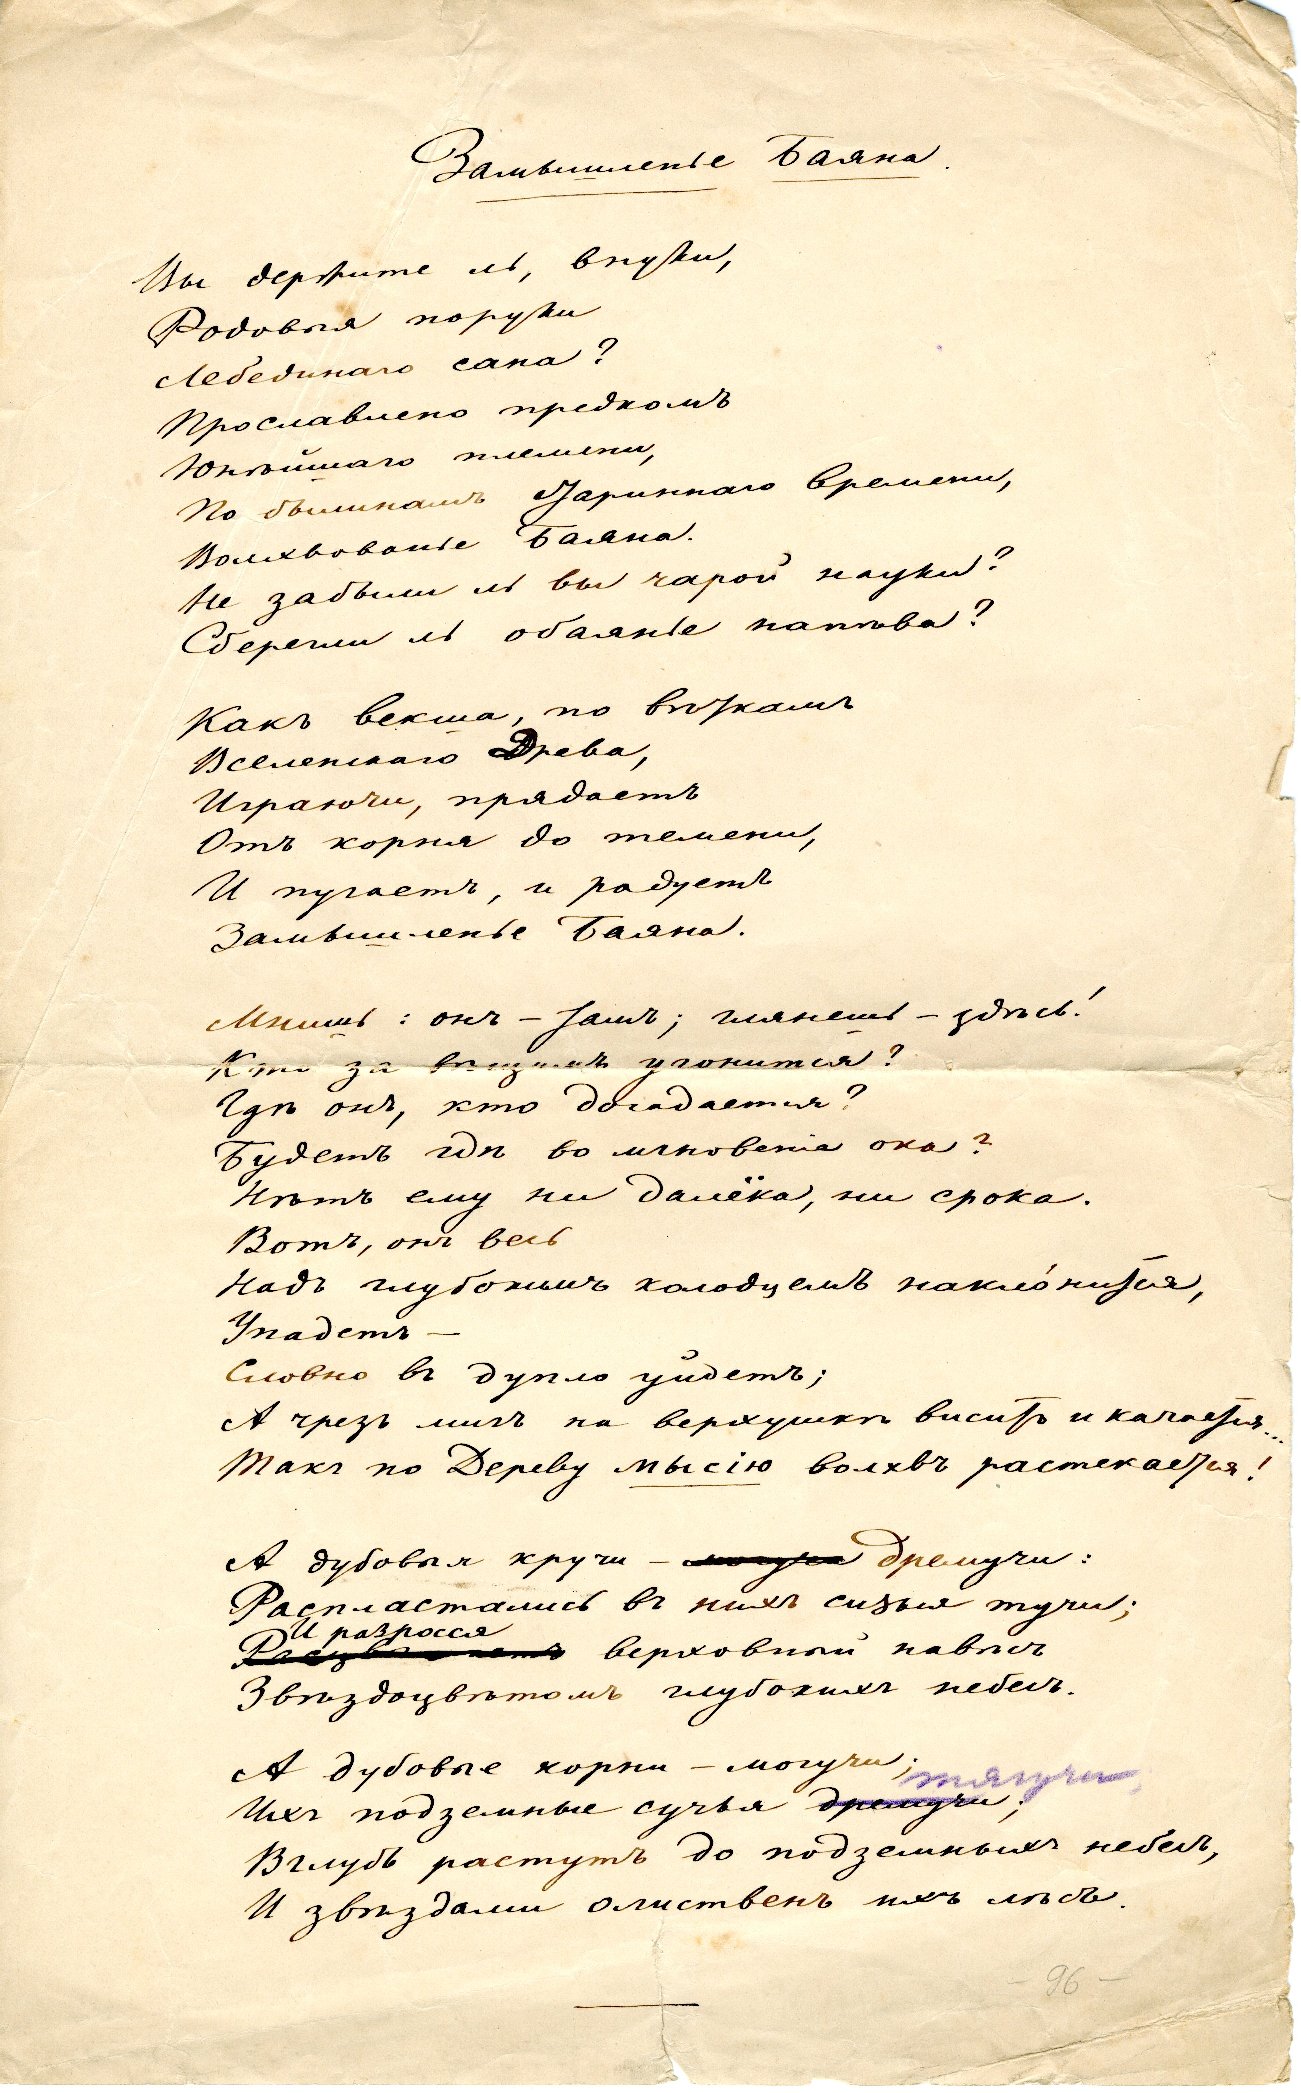 Замышленье Баяна.
Вы держите ль, внуки,
Родовыя поруки
Лебединаго сана?
Прославлено предкомъ
Юнѣйшаго племени,
По былинамъ Тариннаго времени,
Волхвованье Баяна.
Не забыли ль вы чарой науки?
Сберегли ль обаянье напѣва?
Какъ векша, по вѣткамъ
Вселенскаго Древа,
Играючи, прядаетъ
Отъ корня до темени,
И пугаетъ, и радуетъ
Замышленье Баяна.
Мнишь: онъ – тамъ; глянешь – здѣсь!
Кто за вѣщимъ угонится?
Гдѣ онъ, кто догадается?
Будетъ гдѣ во мгновенiе ока?
Нѣтъ ему ни далёка, ни срока.
Вотъ, онъ весь
Надъ глубокимъ колодцемъ накло́нится,
Упадетъ –
Словно въ дупло уйдетъ;
А чрезъ мигъ на верхушкѣ виситъ и качается...
Такъ по Дереву мысiю волхвъ растекается!
А дубовыя кручи – могучи дремучи:
Распластались въ нихъ сизыя тучи;
И разросся
верховный навѣсъ
Звѣздоцвѣтомъ глубокихъ небесъ.
А дубовые корни – могучи;
тягучи,
Ихъ подземные сучья дремучи;
Вглубь растутъ до подземныхъ небесъ,
И звѣздами олиственъ ихъ лѣсъ.
– 96 –